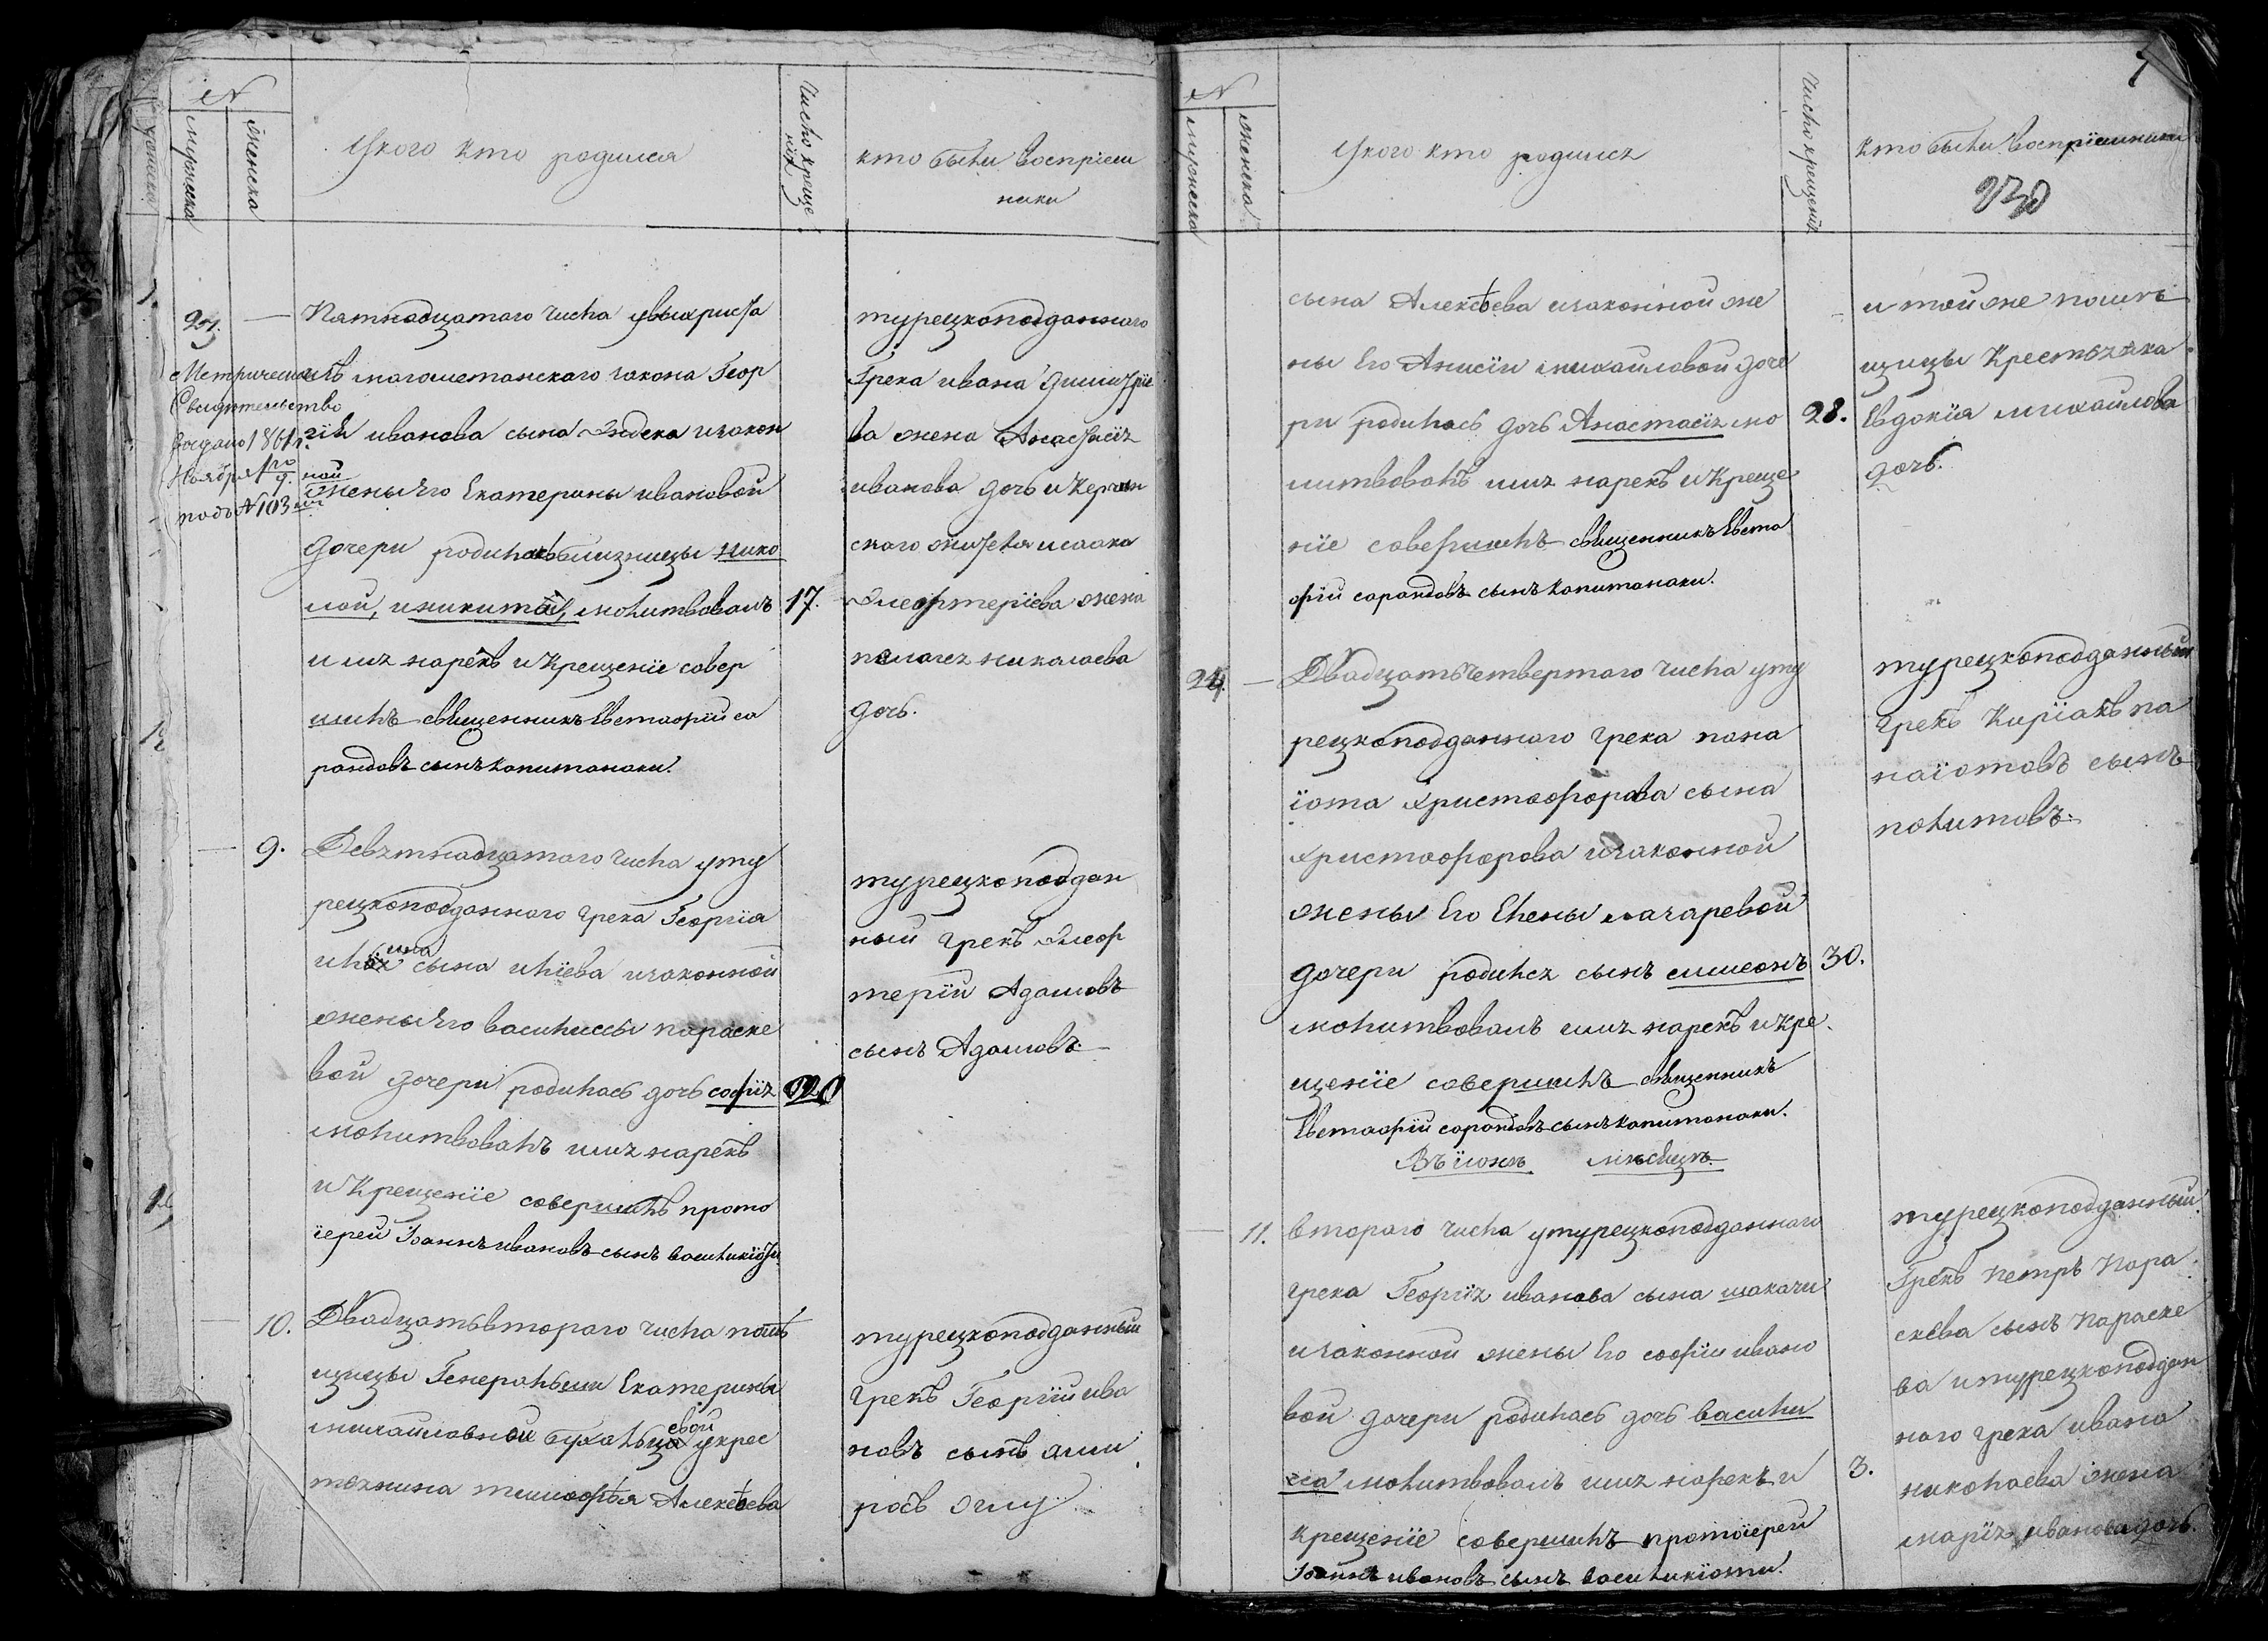 №
мужеска
женска
Укого кто родился
Число креще
нія
кто были воспріем
ники
23.
Пятнадцатаго числа увыхриста
изъ магометанскаго закона Геор
гія иванова сына изакон
ной
жены его Екатерины ивановой
дочери родились близнецы нико
лай, иникита, молитвовалъ
имя нарекъ икрещеніе совер
шилъ священникъ Евстафій са
рандовъ сынъ капитанаки.
Метрическое
Свидетельство
выдано 1861 г.
Ноября 9.
подъ № 103
17.
турецкоподданнаго
Грека ивана димитріе
ва жена Анастасія
иванова дочь и Керчен
скаго жителя исаака
Элефтеріева жена
пелагея николаева
дочь.
9.
Девятнадцатаго числа уту
рецкоподданнаго грека Георгія
сына иліева изаконной
жены его василиссы параске
вой дочери родилась дочь софія
молитвовалъ имя нарекъ
и Крещеніе совершилъ прото
іерей Іоаннъ ивановъ сынъ василикіоти.
20
турецкоподдан
ный грекъ Элеф
терій Адамовъ
сынъ Адамовъ.
10.
Двадцатьвтораго числа помѣ
щицы Генеральши Екатерины
михайловной
укрес
тьянина тимофѣя Алексѣева
турецкоподданный
грекъ Георгій ива
новъ сынъ
оглу
№
мужеска
женска
Укого кто родился
Число крещенія
кто были воспріемники
7
230
сына Алексѣева изаконной же
ны Его Анисіи михайловой доче
ри родилась дочь Анастасія мо
литвовалъ имя нарекъ икреще
ніе совершилъ священникъ Евста
фій сарандовъ сынъ капитанаки.
28.
и той же помѣ
щицы Крестьянка
Евдокія михайлова
дочь.
24.
Двадцатьчетвертаго числа уту
рецкоподданнаго грека пана
іота христофорова сына
христофорова изаконной
жены Его Елены лазаревой
дочери родился сынъ симеонъ
молитвовалъ имя нарекъ икре
щеніе совершилъ священникъ
Евстафій сарандовъ сынъ капитанаки.
30.
турецкоподданный
грекъ Киріакъ па
наіотовъ сынъ
политовъ.
Въ іюнѣ мѣсяцѣ.
11.
втораго числа утурецкоподданнаго
грека Георгія иванова сына шакачи
изаконной жены Его софіи ивано
вой дочери родилась дочь васили
са молитвовалъ имя нарекъ и
крещеніе совершилъ протоіерей
Іоаннъ ивановъ сынъ василикіоти.
3.
турецкоподданный
Грекъ петръ Пара
скева сынъ параске
ва итурецкоподдан
наго грека ивана
николаева жена
марія иванова дочь.